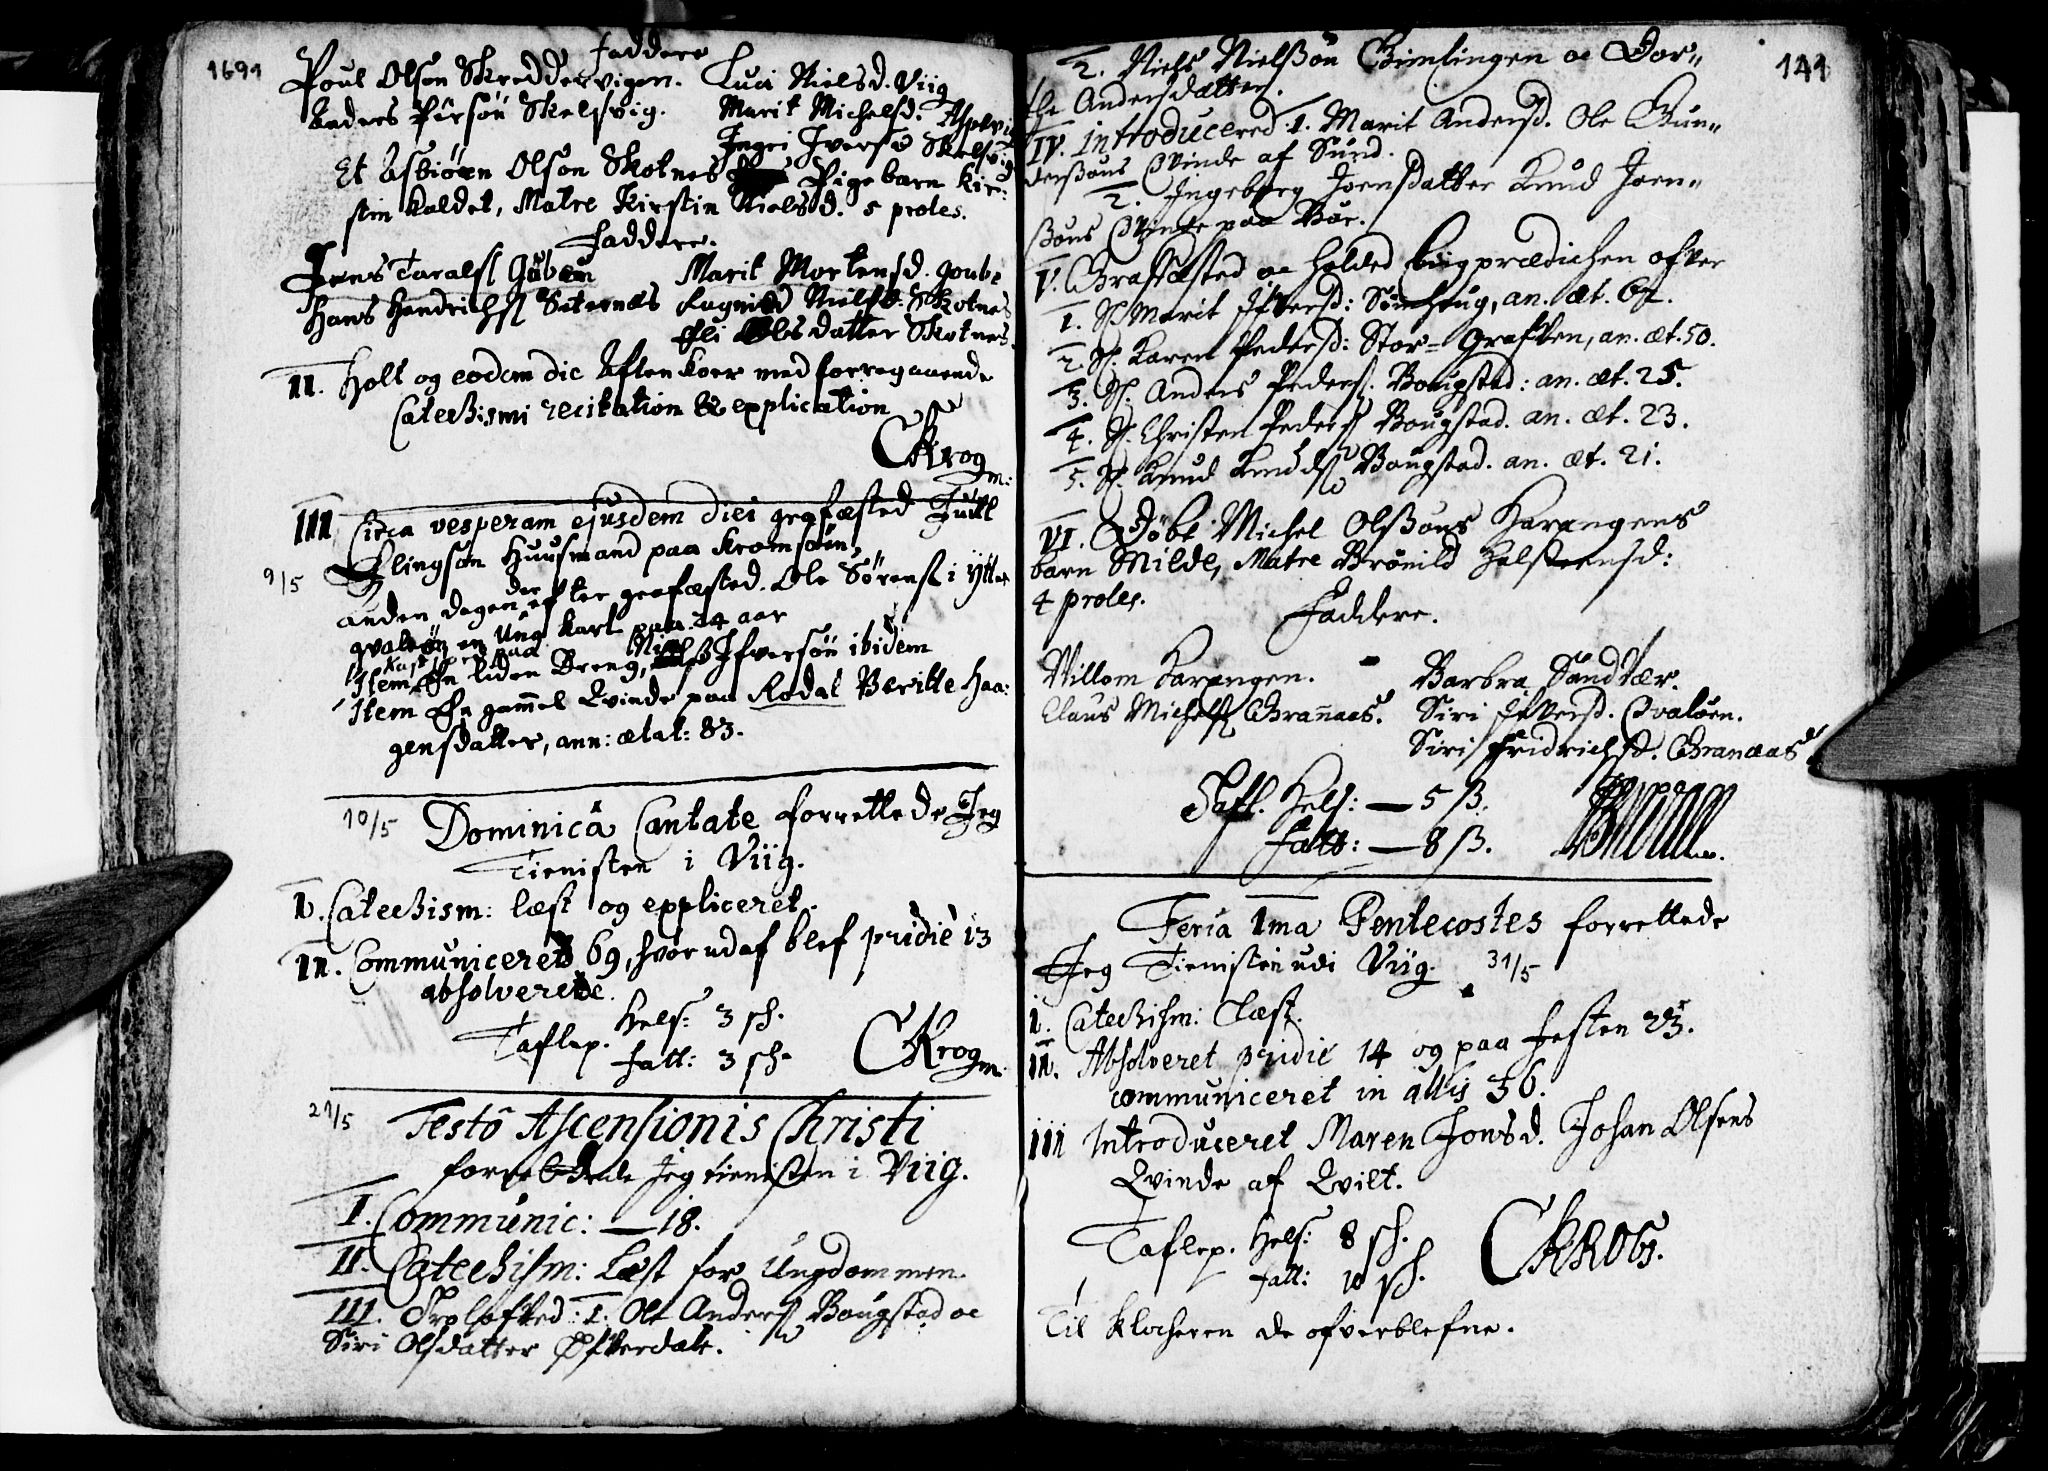 1691
Faddere
Poul Olson Skreddervigen. Luci Nielsd. Viig
Anders Pörsön Skelsvig. Marit Michelsd. Aspevig
Ingri Ifversd Skelsvig
Et Asbiörn Olson Skotnes Pigebarn Kir-
stin kaldet, Matre Kirstin Nielsd. 5 proles.
Faddere.
Jens Taralss Marit Mortensd.
Hans Hendrichss Seternæs Ragnild Nielsd: Skotnes
Eli Olsdatter Skotnes.
II. Holt og eodem die Aftenkoer med forregaaende
Catechismi recitation & explication
CKrog
m:
III Circa vesperam ejusdem diei grafæsted Juel
Elingsøn Huusmand paa Kromsøin,
9/5
anden dagen der efter grafæsted. Ole Sørenss i Ytter
qvaløn en Ung Karl paa 24 aar
Item En liden Dreng, Niels Ifversøn ibidem
Item En gammel Qvinde paa Rodal Beritte Haa:
gensdatter, ann: ætat: 83.
10/5 Dominicâ Cantate forrettede Jeg
Tienisten i Viig.
I. Catechism: læst og expliceret.
II. Communicered 69, hvorudaf blef pridie 13
absolverede.
Taflep. Helf: 3 sh.
Fatt: 3 sh.
CKrog
m.
21/5 Festô Ascensionis Christi
forrettede Jeg tienisten i Viig.
I. Communic: — 18.
II. Catechism: Læst for Ungdommen.
III. Trolofved: 1. Ole Anderss Bougstad oc
Siri Olsdatter Øfverdale.
141
2. Niels Nielßøn Gimlingen oc Dor-
the Andersdatter.
IV. Introducered: 1. Marit Andersd. Ole Gun-
derßøns Qvinde af Sund.
2. Ingeborg Joensdatter Knud Joen-
ßøns Qvinde paa Bøe.
V. Grafæsted oc holded Liigprædichen ofver
1. S. Marit Ifversd: an. æt. 62.
2. S. Karen Pedersd: Stor-Grafven, an. æt. 50.
3. S. Anders Pederss. Bougstad: an. æt. 25.
4. S. Christen Pederss Bougstad. an. æt. 23.
5. S. Knud Knudss Bougstad. an. æt. 21.
VI. Døbt Michel Olßøns Harangens
barn Milde, Matre Brønild Halsteensd:
4 proles.
Faddere.
Willom Harangen. Barbra Sandvær.
Claus Michelss Grannæs. Siri Ifversd. Qvaløen.
Siri Fridrichsd. Granæas
Tafl. Helf: — 5 ß.
Fatt: — 8 ß.
Feria 1ma Pentecostes forrettede
Jeg Tienisten udi Viig. 31/5
I. Catechism: Læst.
II. Absolveret pridie 14 og paa Festen 23.
communiceret in allis 36.
III Introduceret Maren Jonsd. Johan Olsens
Qvinde af Qvilt.
Taflep. Helf: 8 sh.
Fatt: 10 sh.
CKROG.
Til Klocheren de ofverblefne.